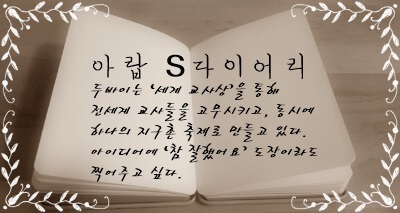 아랍 S다이어리
두바이는 '세계 교사상'을 통해
전세계 교사들을 고무시키고, 동시에
하나의 지구촌 축제로 만들고 있다.
아이디어에 '참 잘했어요' 도장이라도
찍어주고 싶다.